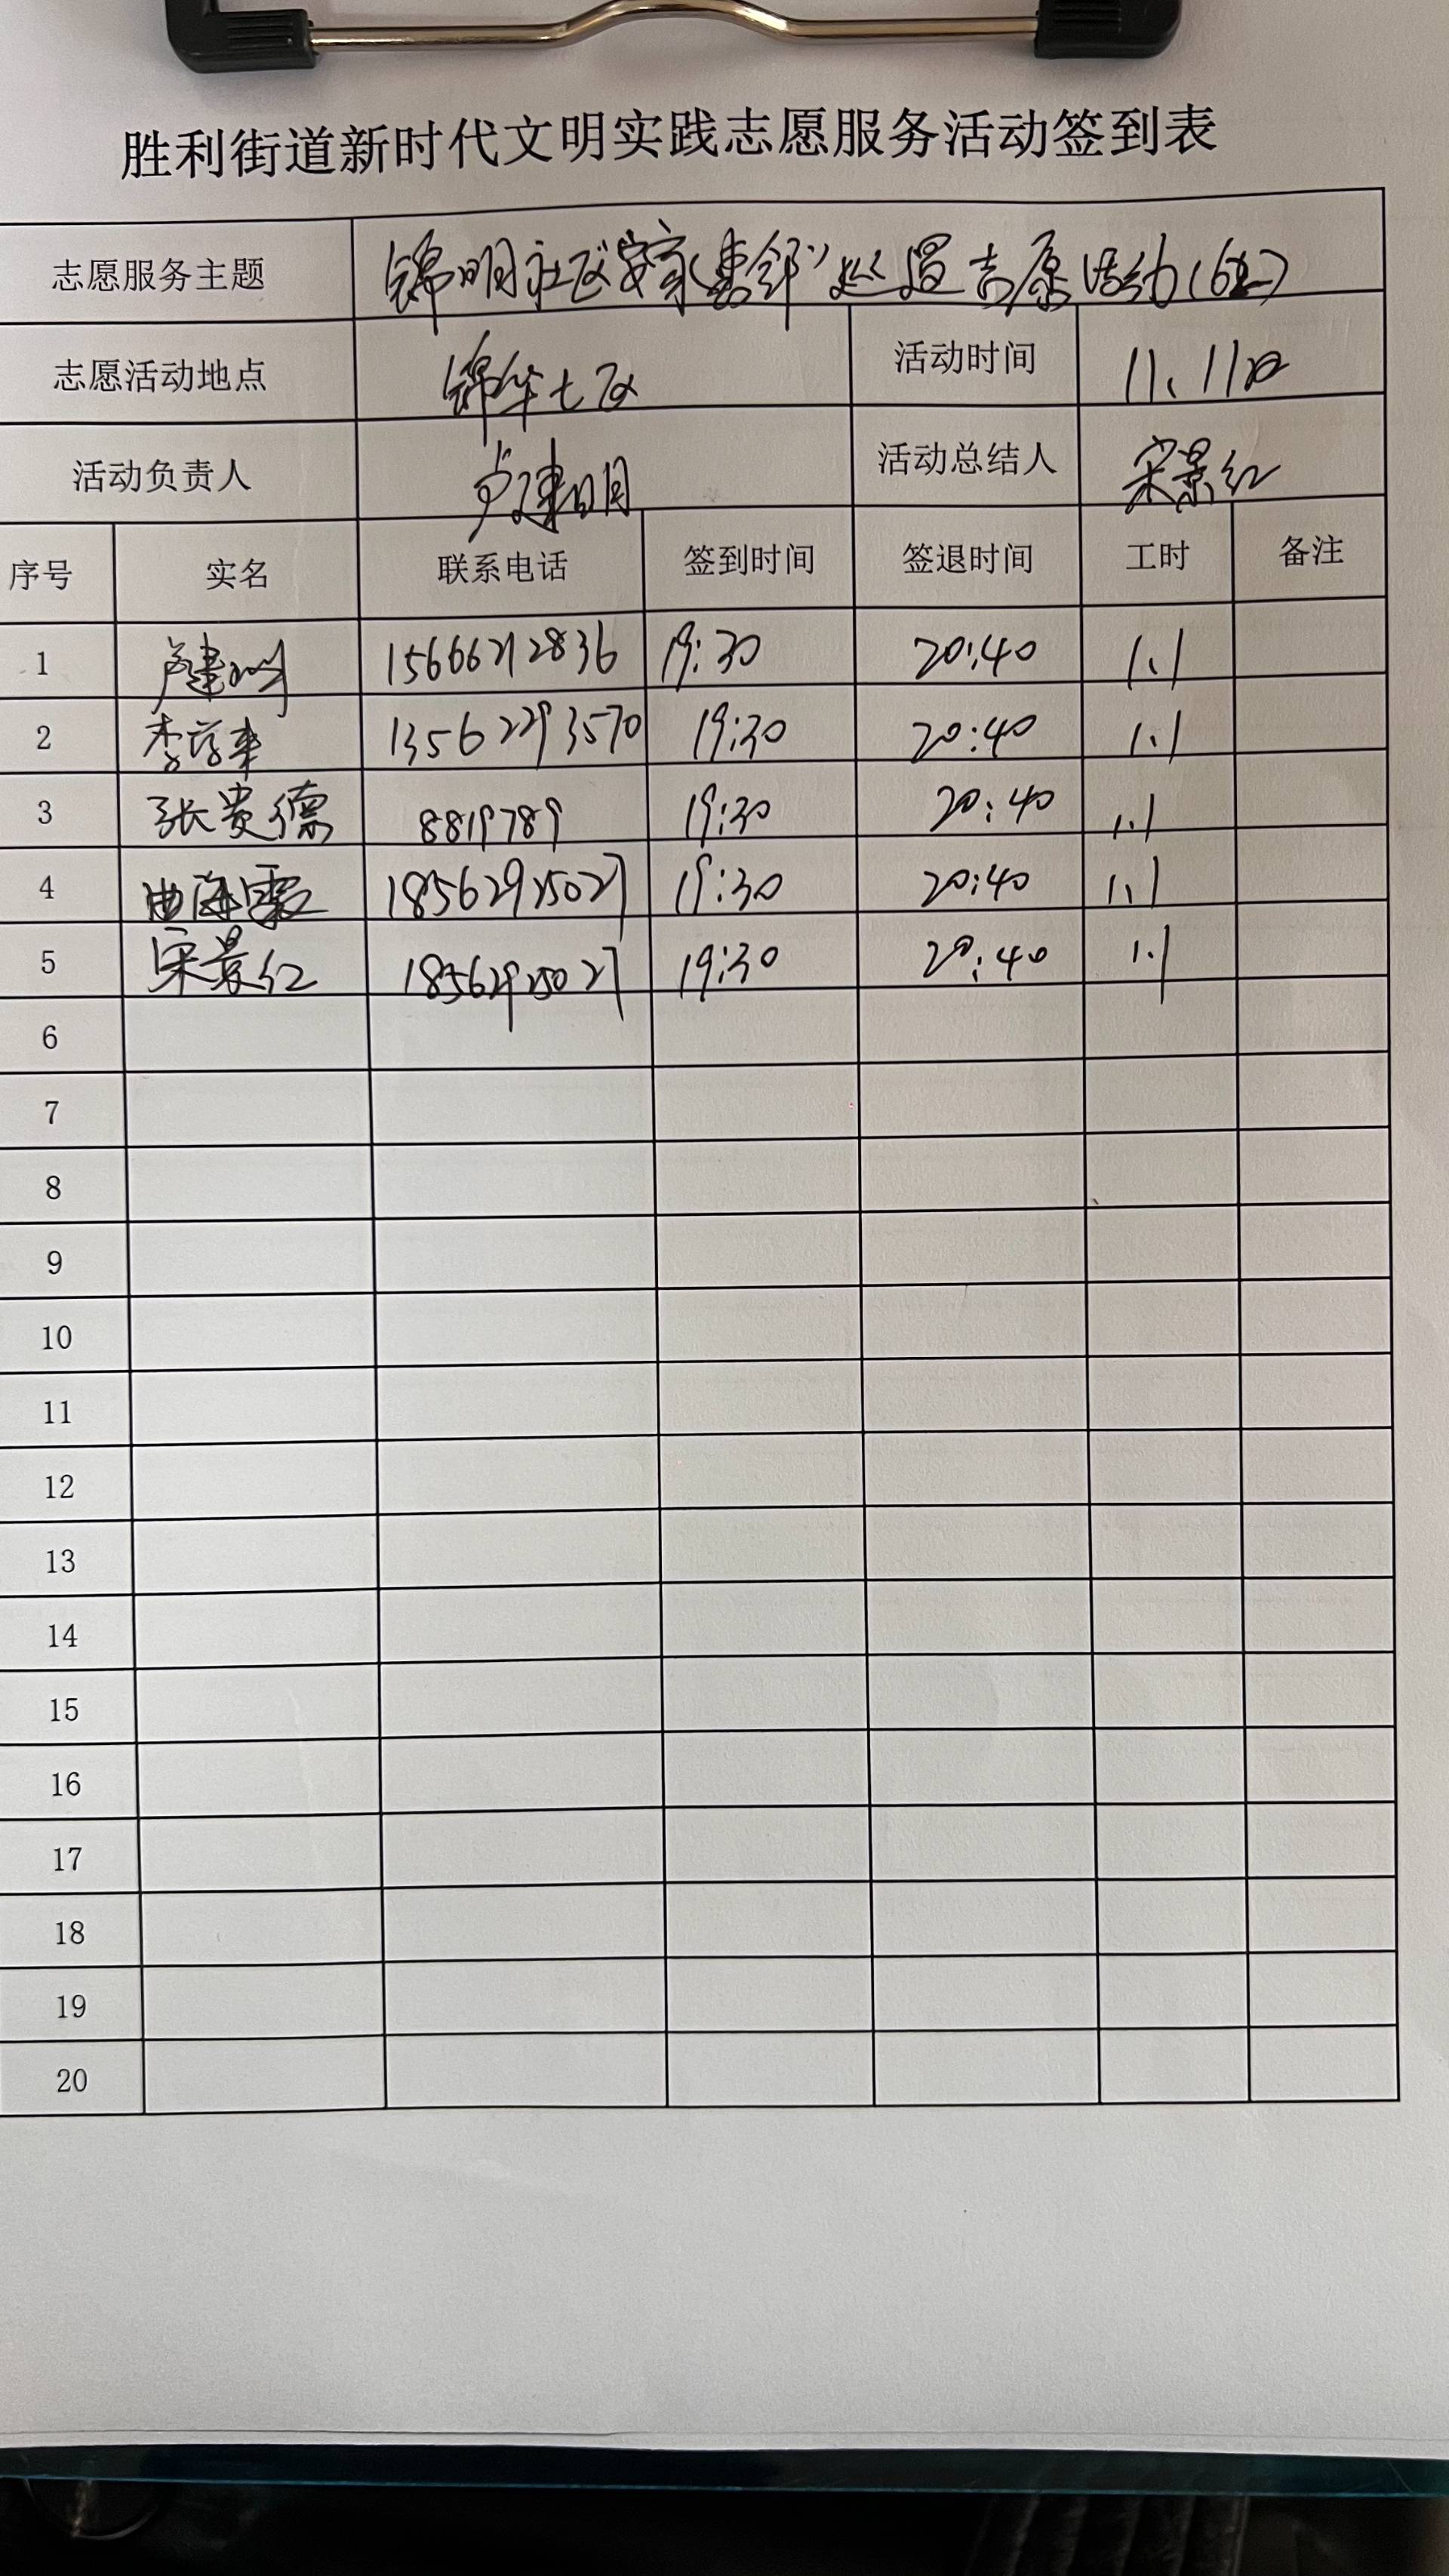 胜利街道新时代文明实践志愿服务活动签到表
志愿服务主题 锦明社区"安家惠邻"巡逻志愿活动(6组)
志愿活动地点 锦华七区 活动时间 11、11日
活动负责人 卢建明 活动总结人 宋景红
序号 实名 联系电话 签到时间 签退时间 工时 备注
1 卢建明 15666212836 19:30 20:40 1.1
2 李 13562293570 19:30 20:40 1.1
3 张贵德 8819789 19:30 20:40 1.1
4 曲海霞 18562925027 19:30 20:40 1.1
5 宋景红 18562925027 19:30 20:40 1.1
6
7
8
9
10
11
12
13
14
15
16
17
18
19
20